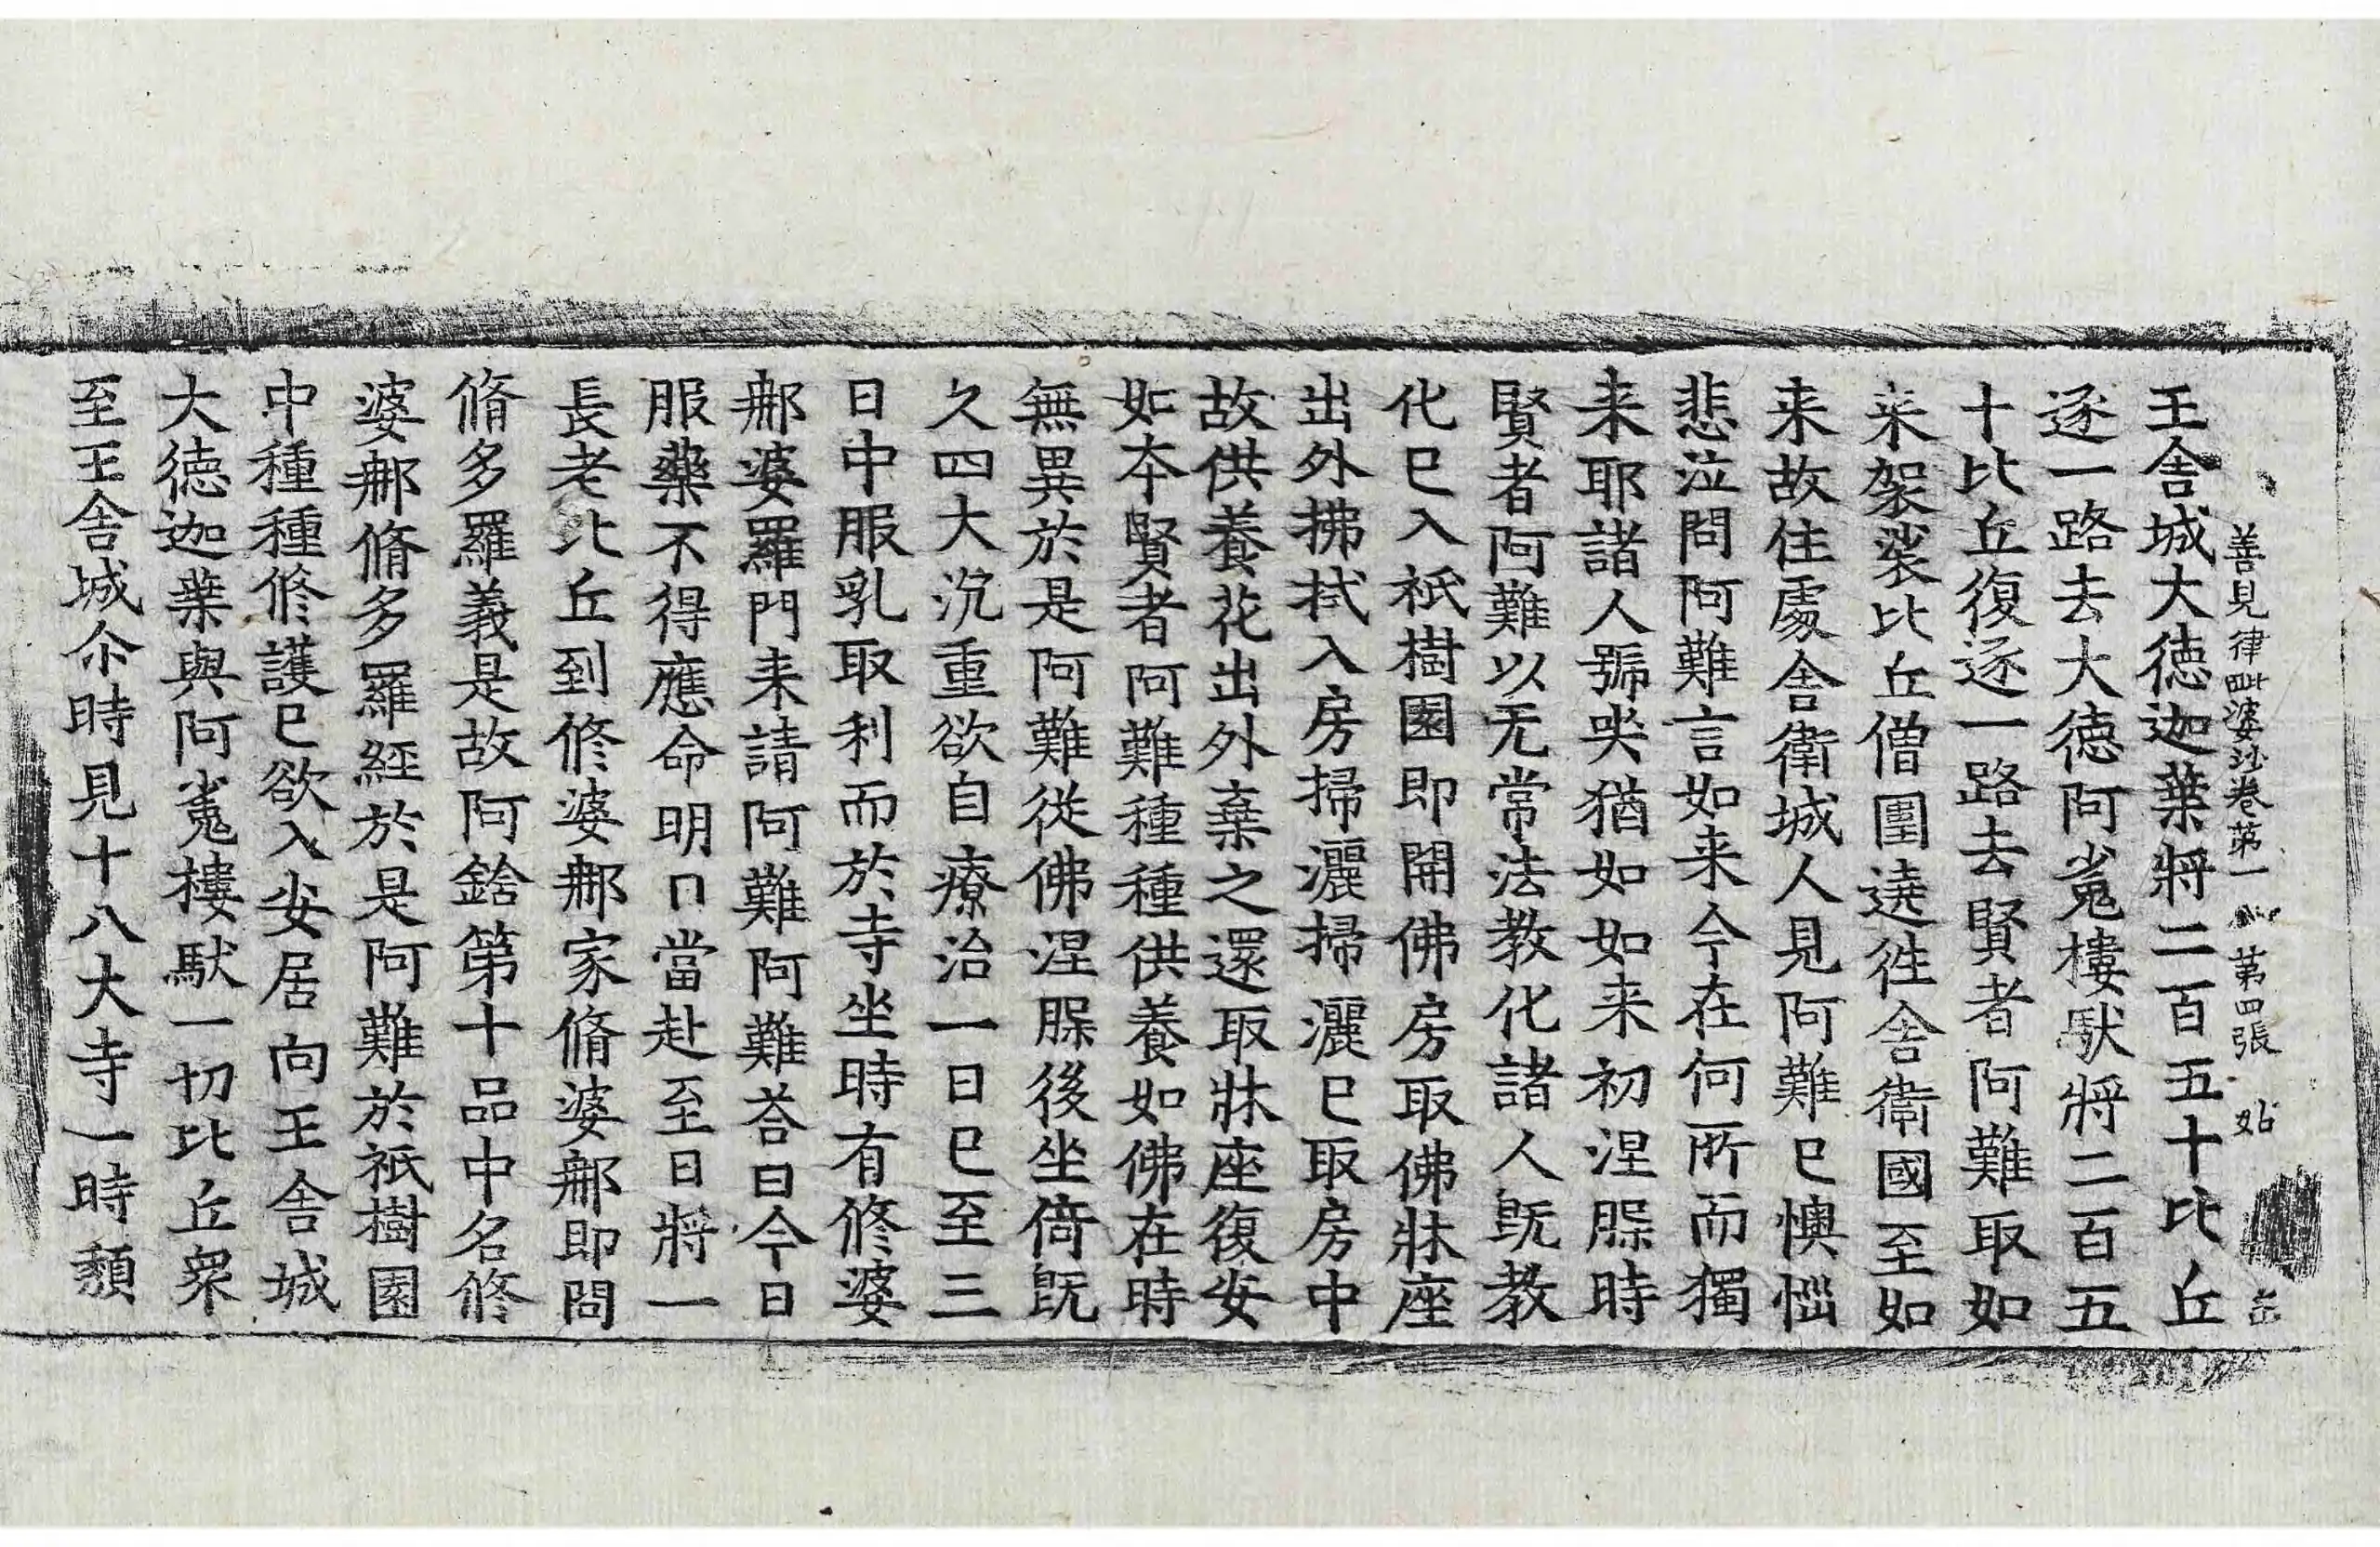 善見律毗婆沙卷第一 第四張 姑
王舍城大德迦葉將二百五十比丘
逐一路去大德阿㝹樓馱將二百五
十比丘復逐一路去賢者阿難取如
来袈裟比丘僧圍遶徃舍衛國至如
来故住處舍衛城人見阿難已懊惱
悲泣問阿難言如来今在何所而獨
来耶諸人號哭猶如如来初涅槃時
賢者阿難以无常法教化諸人旣教
化已入祇樹園即開佛房取佛牀座
出外拂拭入房掃灑掃灑已取房中
故供養花出外棄之還取牀座復安
如本賢者阿難種種供養如佛在時
無異於是阿難從佛涅槃後坐倚旣
久四大沉重欲自療治一日已至三
日中服乳取利而於寺坐時有修婆
那婆羅門来請阿難阿難荅曰今日
服藥不得應命明日當赴至日將一
長老比丘到修婆那家脩婆那即問
脩多羅義是故阿鋡第十品中名修
婆那脩多羅經於是阿難於祇樹園
中種種修護已欲入安居向王舍城
大德迦葉與阿㝹樓馱一切比丘衆
至王舍城尒時見十八大寺一時頹